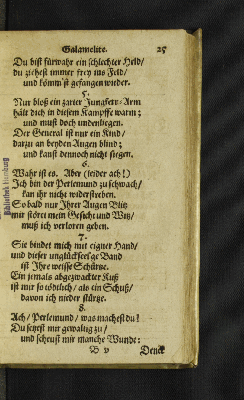 Galamelite. 25
Du bist fürwahr ein schlechter Held/
du ziehest immer frey ins Feld/
und kömm'st gefangen wieder.
5.
Nur bloß ein zarter Jungfern-Arm
hält dich in diesem Kampffe warm;
und must doch undenliegen.
Der General ist nur ein Kind/
darzu an beyden Augen blind;
und kanst dennoch nicht siegen.
6.
Wahr ist es. Aber (leider ach!)
Ich bin der Perlemund zu schwach/
kan ihr nicht widerstreben.
So bald nur Ihrer Augen Blitz
mir störet mein Gesicht und Witz/
muß ich verloren geben.
7.
Sie bindet mich mit eigner Hand/
und dieser unglückseel'ge Band
ist Ihre weisse Schürtze.
Ein jemals abgezwackter Kuß
ist mir so tödtlich/ als ein Schuß/
davon ich nieder stürtze.
8.
Ach/ Perlemund/ was machest du?
Du setzest mir gewaltig zu/
und scheust mir manche Wunde:
B v Denck
Bibliothek Hamburg